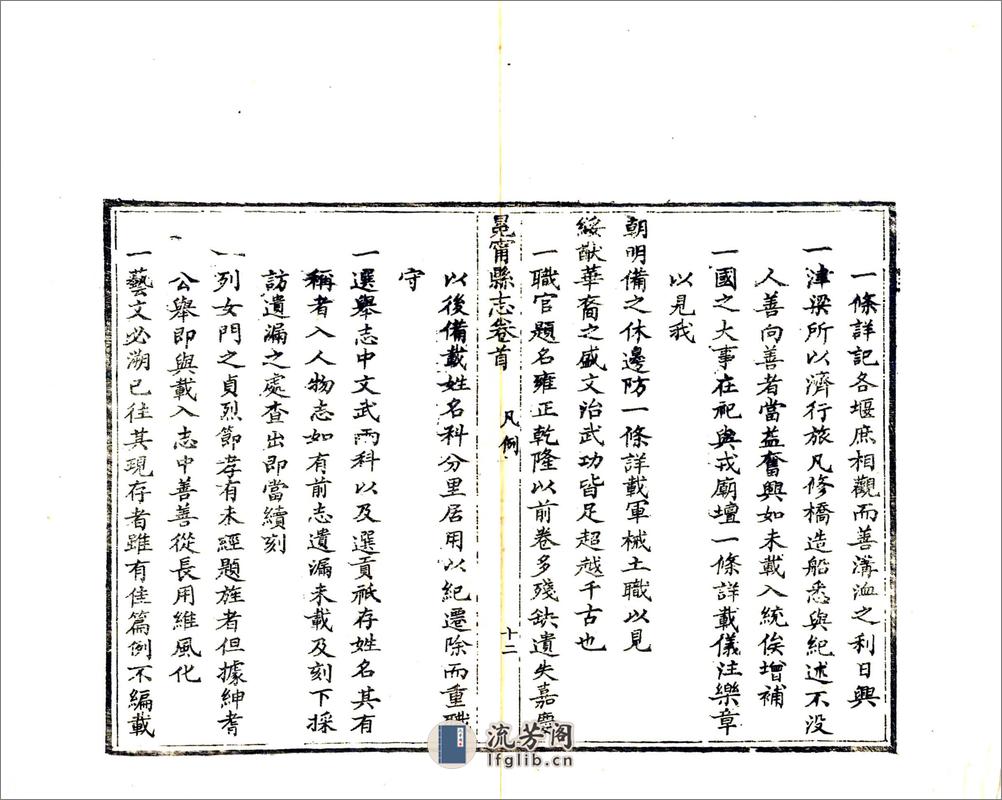 一條詳記各堰庶相觀而善溝洫之利日興
一津梁所以濟行旅凡修橋造船悉與紀述不没
人善向善者當益奮興如未載入統俟增補
一國之大事在祀與戎廟壇一條詳載儀注樂章
以見我
朝明備之休邊防一條詳載軍械土職以見
綏猷華裔之盛文治武功皆足超越千古也
一職官題名雍正乾隆以前卷多殘缺遺失嘉慶
冕甯縣志卷首 凡例 十二
以後備載姓名科分里居用以紀遷除而重職
守
一選舉志中文武兩科以及選貢祇存姓名其有
稱者入人物志如有前志遺漏未載及刻下採
訪遺漏之處查出即當續刻
一列女門之貞烈節孝有未經題旌者但據紳耆
公舉即與載入志中善善從長用維風化
一藝文必溯已往其現存者雖有佳篇例不編載
流芳阁
lfglib.cn